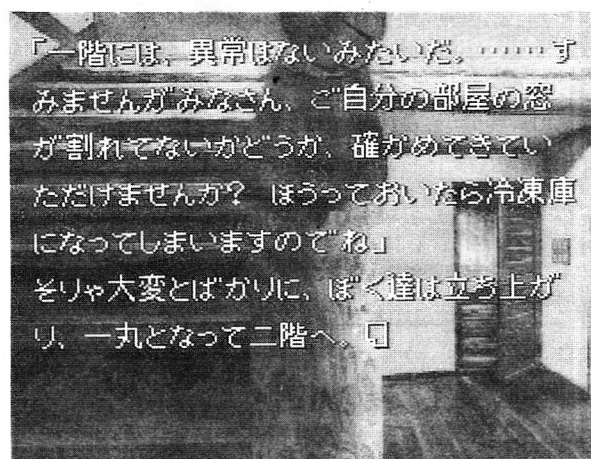 「一階には、異常はないみたいだ。……す
みませんがみなさん、ご自分の部屋の窓
が割れてないかどうか、確かめてきてい
ただけませんか？　ほうっておいたら冷凍庫
になってしまいますのでね」
そりゃ大変とばかりに、ぼく達は立ち上が
り、一丸となって二階へ。